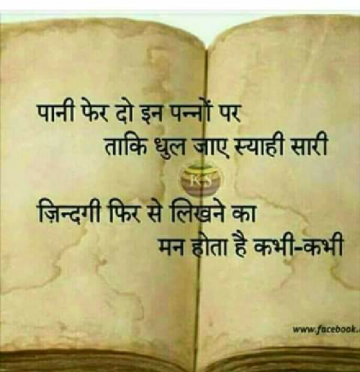 पानी फेर दो इन पन्नों पर
ताकि धुल जाए स्याही सारी
KS
ज़िन्दगी फिर से लिखने का
मन होता है कभी-कभी
www.facebook.